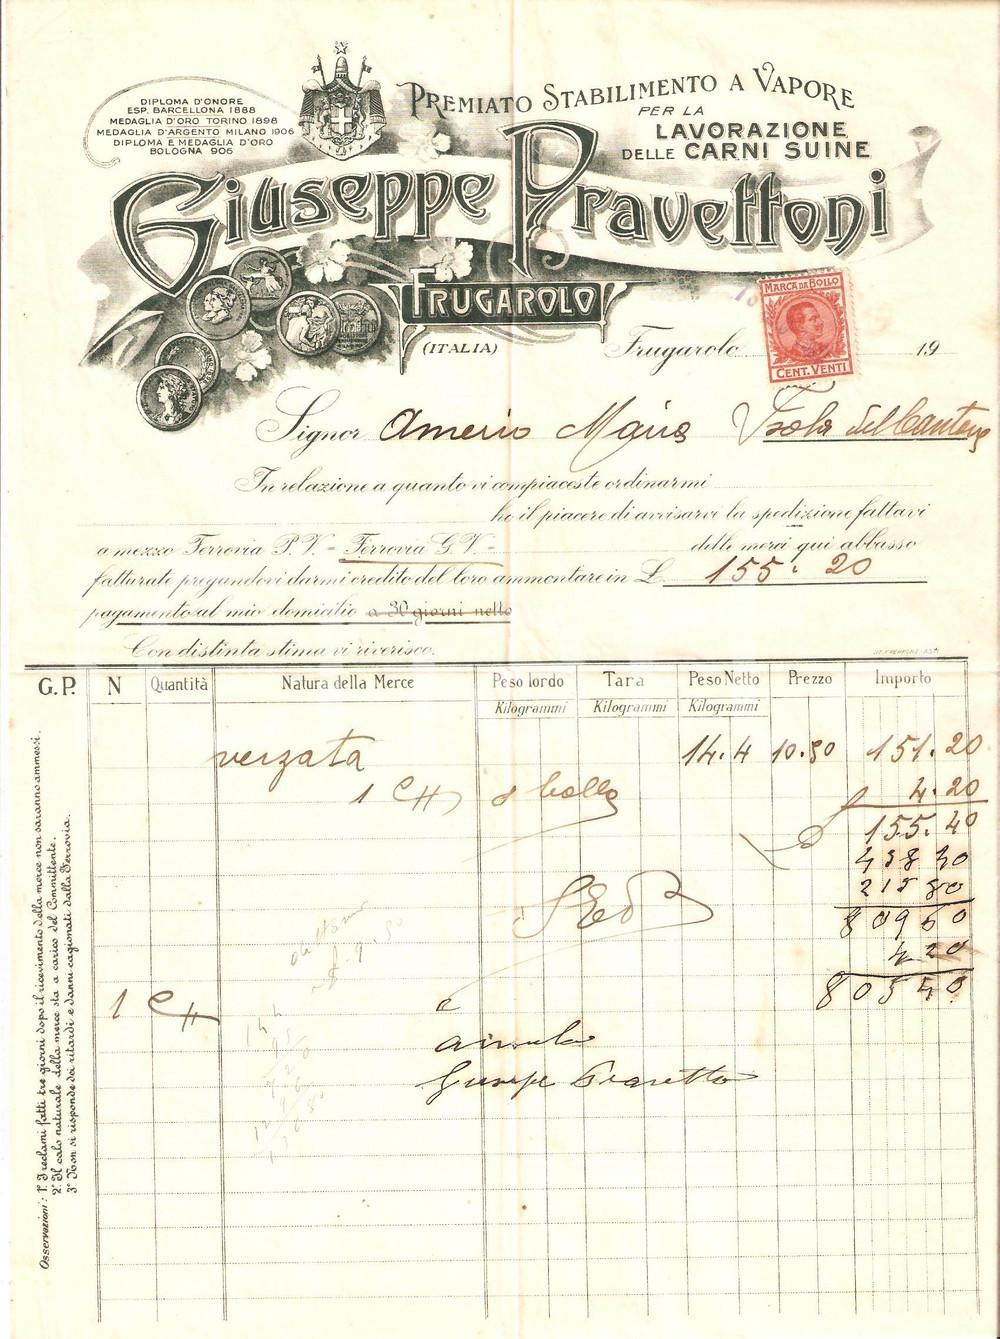 DIPLOMA D'ONORE
ESP. BARCELLONA 1888
MEDAGLIA D'ORO TORINO 1898
MEDAGLIA D'ARGENTO MILANO 1906
DIPLOMA E MEDAGLIA D'ORO
BOLOGNA 906
PREMIATO STABILIMENTO A VAPORE
PER LA
LAVORAZIONE
DELLE CARNI SUINE
Giuseppe Pravettoni
FRUGAROLO
(ITALIA)
MARCA DA BOLLO
CENT. VENTI
Frugarolo 19
Signor Amerio Maria Isola del Cantone
In relazione a quanto vi compiaceste ordinarmi
ho il piacere di avvisarvi la spedizione fattavi
a mezzo Ferrovia P.V. = Ferrovia G.V. = delle merci qui abbasso
fatturate pregandovi darmi credito del loro ammontare in L. 155.20
pagamento al mio domicilio a 30 giorni netto
Con distinta stima vi riverisco.
G.P. N Quantità Natura della Merce Peso lordo Tara Peso Netto Prezzo Importo
Kilogrammi Kilogrammi Kilogrammi
verzata 14.4 10.50 151.20
1 e bollo 4.20
155.40
438 40
215 80
809 60
4 20
805 40
1
e
Giuseppe
Osservazioni: 1° I reclami fatti tre giorni dopo il ricevimento della merce non saranno ammessi.
2° Il calo naturale della merce sta a carico del Committente.
3° Non si risponde dei ritardi e danni cagionati dalla Ferrovia.